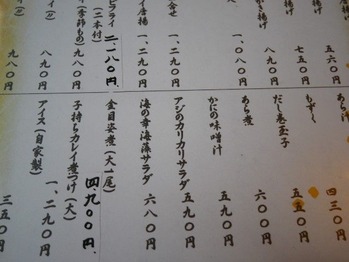 五六〇円
揚げ 七五〇円
揚げ 八九〇円
一、〇八〇円
合せ 一、二九〇円
イ唐揚 一、二九〇円
ビフライ
(二本付) 二一八〇円
(季節もの) 九八〇円
九八〇円
九八〇円
あら汁
もずく 四三〇円
だし巻玉子 五五〇円
あら煮 六〇〇円
かにの味噌汁 五九〇円
アジのカリカリサラダ 五九〇円
海の幸海藻サラダ 六八〇円
金目姿煮(大一尾) 四九〇〇円
子持ちカレイ煮つけ(大) 一、二九〇円
アイス(自家製) 三五〇円